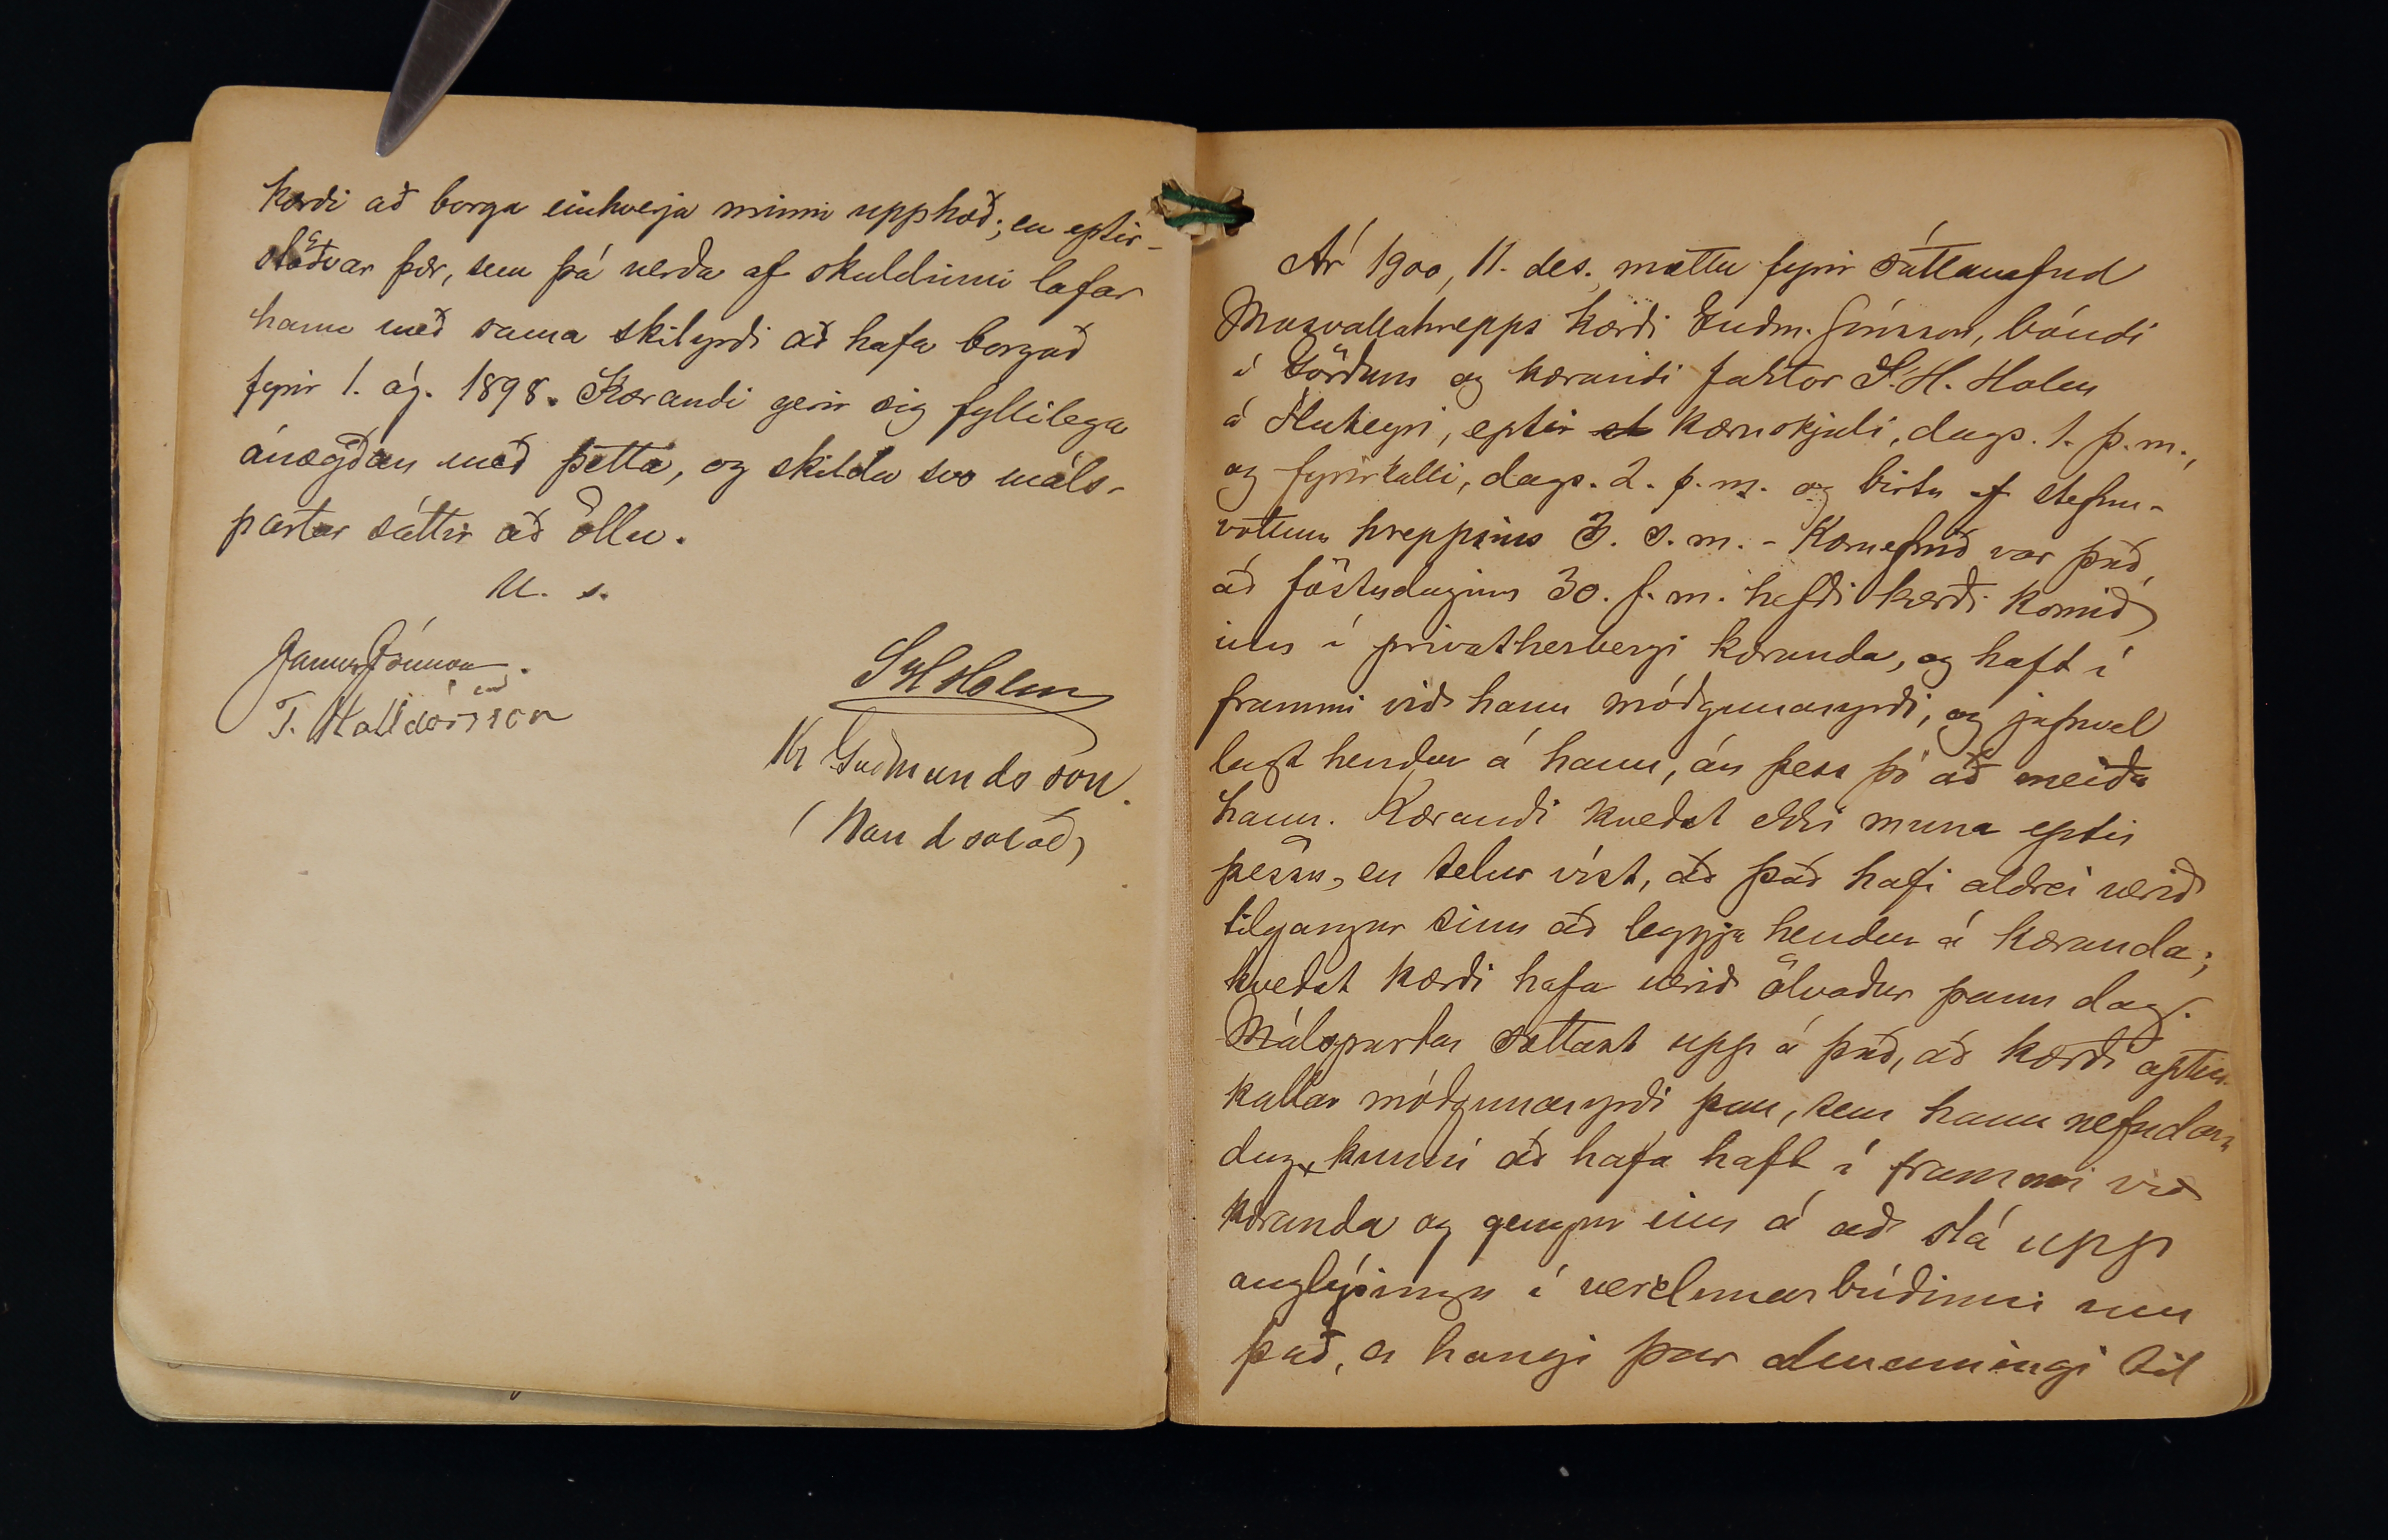 kærði að borga einhverja minni upphæð; en eptir-
stöðvar þær, sem þá verða af skuldinni lofar
hann með sama skilyrði að hafa borgað
fyrir 1. ág. 1898. Kærandi gerir sig fyllilega
ánægðan með þetta, og skildu svo máls-
partar sáttir að öllu.
U. s.
Janus Jónsson.
T. Halldórsson
SHHolm
Kr Guðmundsson.
(Handsalað)
Ár 1900, 11. des. mættu fyrir sáttanefnd
Mosvallahrepps kærði Guðm. Jónsson, bóndi
í Görðum og kærandi faktor S. H. Holm
á Flateyri, eptir kæruskjali, dags. 1. þ. m.,
og fyrirkalli, dags. 2. þ. m. og birtu af stefnu-
vottum hreppsins 3. s. m. - Kæruefnið var það,
að föstudaginn 30. f. m. hefði kærði komið
inn í privatherbergi kæranda, og haft í
frammi við hann móðgunaryrði, og jafnvel
lagt hendur á hann, án þess þó að meiða
hann. Kærandi kveðst ekki muna eptir
þessu, en telur víst, að það hafi aldrei verið
tilgangur sinn að leggja hendur á kæranda;
kveðst kærði hafa verið ölvaður þann dag.
Málspartar sættast upp á það, að kærði aptur-
kallar móðgunaryrði þau, sem hann nefndan
dag, kunni að hafa haft í frammi við
kæranda og gengur inn á að slá upp
auglýsingu í verzlunarbúðinni um
það, er hangi þar almenningi til